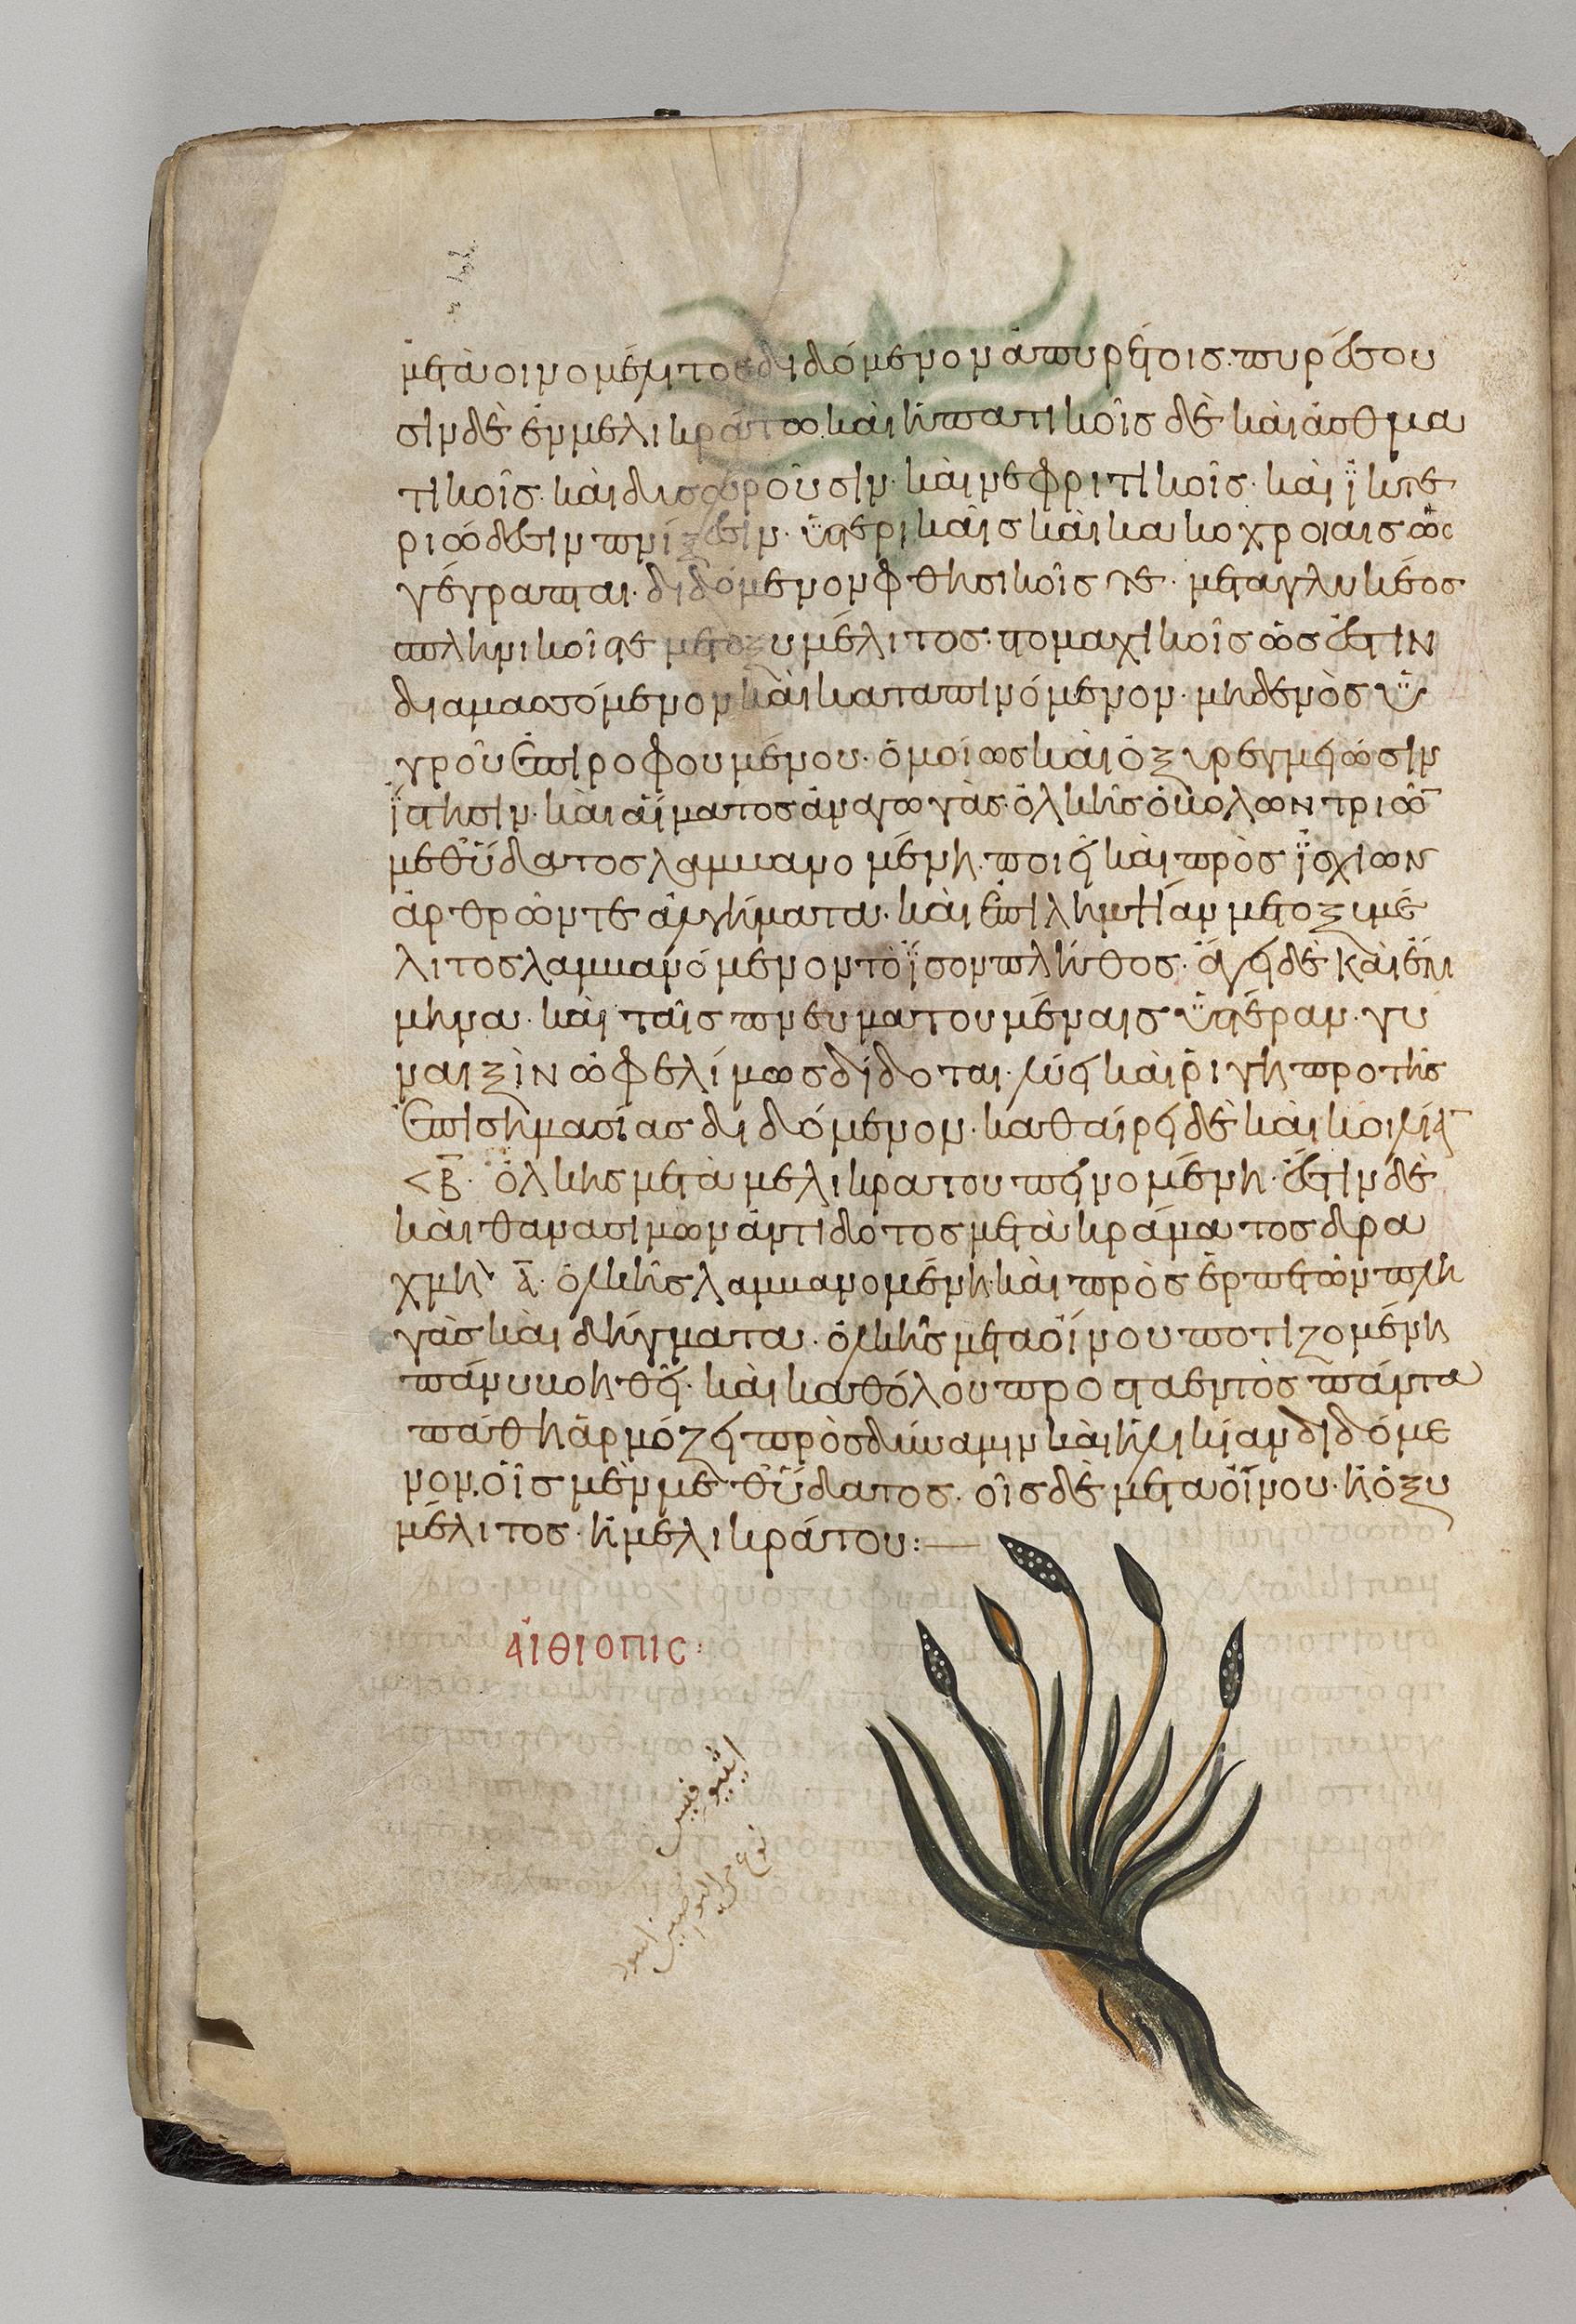 μετὰ οἰνομέλιτος διδόμενον ἀπυρέτοις. πυρέσσου
σιν δὲ ἐν μελικράτω. καὶ ἡπατικοῖς δὲ καὶ ἀσθμα
τικοῖς. καὶ δυσουροῦσιν. καὶ νεφριτικοῖς. καὶ ϊκτε
ριώδεσιν πνίξεσιν. ϋστερικαῖς καὶ κακοχροίαις ὡς
γέγραπται. διδόμενον φθησικοῖς τε. μεταγλυκέος
σπληνικοῖς τε μετοξυμέλιτος. στομαχικοῖς ὡς ἐστὶν
διαμασσόμενον καὶ καταπινόμενον. μηδενὸς ϋ
γροῦ ἐπιροφουμένου. ὁμοίως καὶ ὀξυρεγμειώσιν
ϊστησιν. καὶ αἵματος ἀναγωγὰς. ὁλκῆς ὀβολῶν τριῶ̅
μεθ ὕδατος λαμβανομένη. ποιεῖ καὶ πρὸς ϊσχίων
ἄρθρων τε ἀλγήματα. καὶ ἐπιλημψίαν μετοξιμέ
λιτος λαμβανόμενον τὸ ἴσον πλῆθος. ἄγει δὲ καὶ ἔμ
μηνα. καὶ ταῖς πνευματουμέναις ϋστέραν. γυ
ναιξὶν ὠφελίμως δίδοται. λύει καὶ ρίγη προ τῆς
ἐπισημασίας διδόμενον. καθαίρει δὲ καὶ κοιλία̅
< β̅. ὁλκῆς μετὰ μελικράτου πεινομένη. ἔστιν δὲ
καὶ θανασίμων ἀντίδοτος μετὰ κράματος δρα
χμὴ α̅. ὁλκῆς λαμβανομένη. καὶ πρὸς ἑρπετῶν πλη
γὰς καὶ δήγματα. ὁλκῆς μετα οἴνου ποτιζομένη
πάνυ βοηθεῖ. καὶ καθόλου προς τα ἐντὸς πάντα
πάθη ἁρμόζει πρὸς δύναμιν καὶ ἡλικίαν διδόμε
νον. οἷς μὲν μεθ ὕδατος. οἷς δὲ μετα οἴνου. ἢ ὀξυ
μέλιτος. ἢ μελικράτου:—
αἰθιοπις: